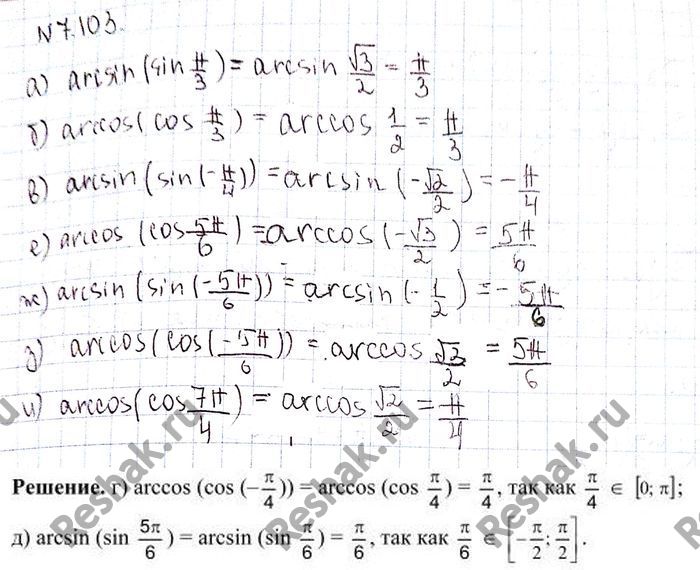 N 7.103.
а) arcsin (sin π/3) = arcsin √3/2 = π/3
б) arccos (cos π/3) = arccos 1/2 = π/3
в) arcsin (sin (-π/4)) = arcsin (-√2/2) = -π/4
е) arccos (cos 5π/6) = arccos (-√3/2) = 5π/6
ж) arcsin (sin (-5π/6)) = arcsin (-1/2) = -5π/6
з) arccos (cos (-5π/6)) = arccos √3/2 = 5π/6
и) arccos (cos 7π/4) = arccos √2/2 = π/4
Решение. г) arccos (cos (-π/4)) = arccos (cos π/4) = π/4, так как π/4 ∈ [0; π];
д) arcsin (sin 5π/6) = arcsin (sin π/6) = π/6, так как π/6 ∈ [-π/2; π/2].
Reshak.ru
Reshak.ru
Reshak.ru